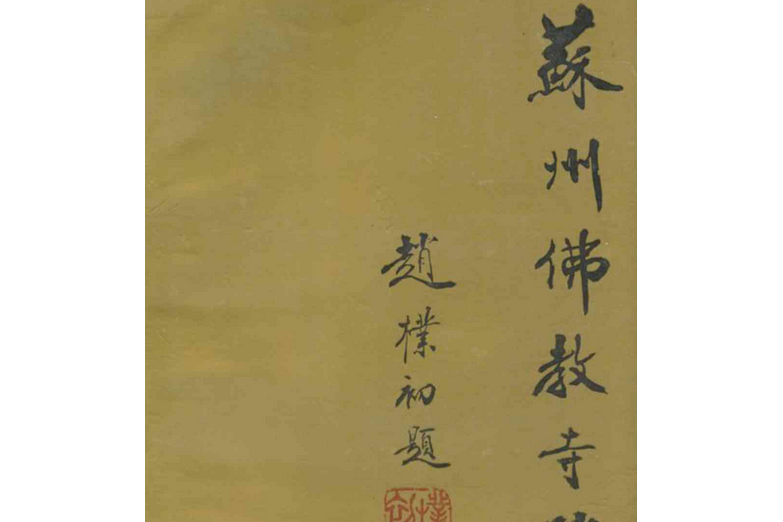 蘇州佛教寺
趙樸初題